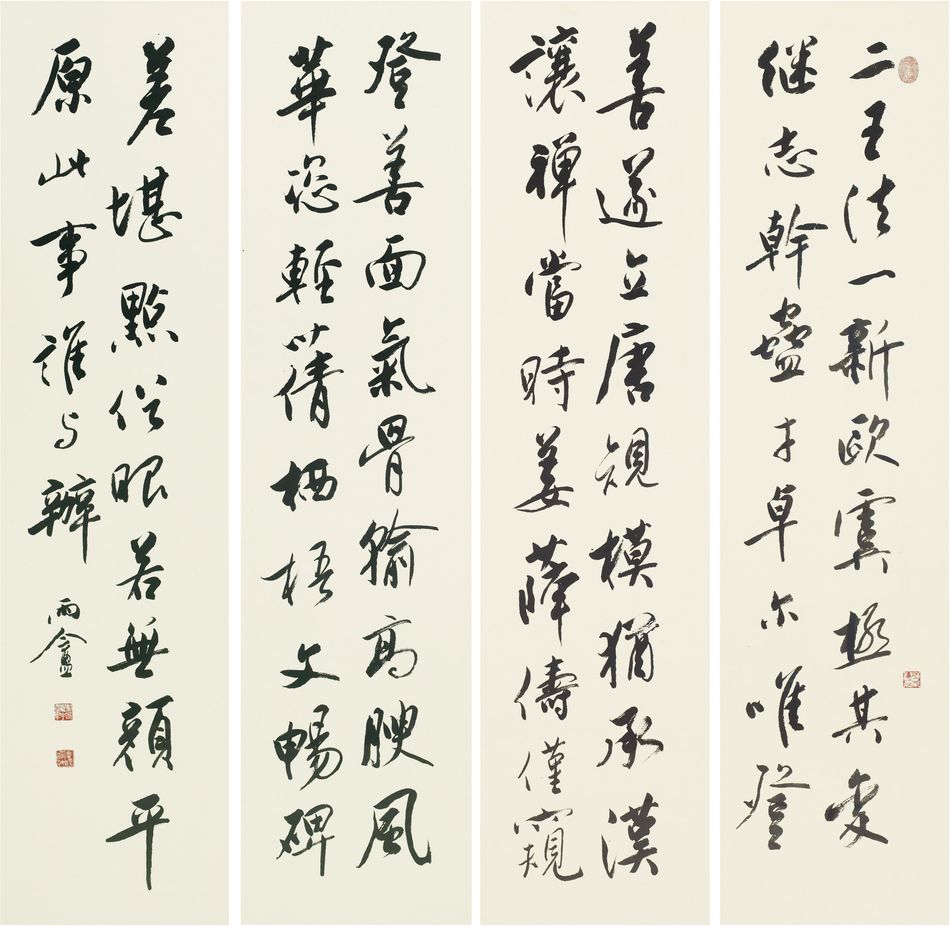 二王法一新歐虞極其变
继志幹蠱才卓尔唯登
善遂立唐規模猶承漢
讓禪當時姜薛儔僅窺
登善面氣骨輸高腴風
華恣輕蒨栖梧文暢碑
差堪點俗眼若無顏平
原此事誰与辨
雨盦